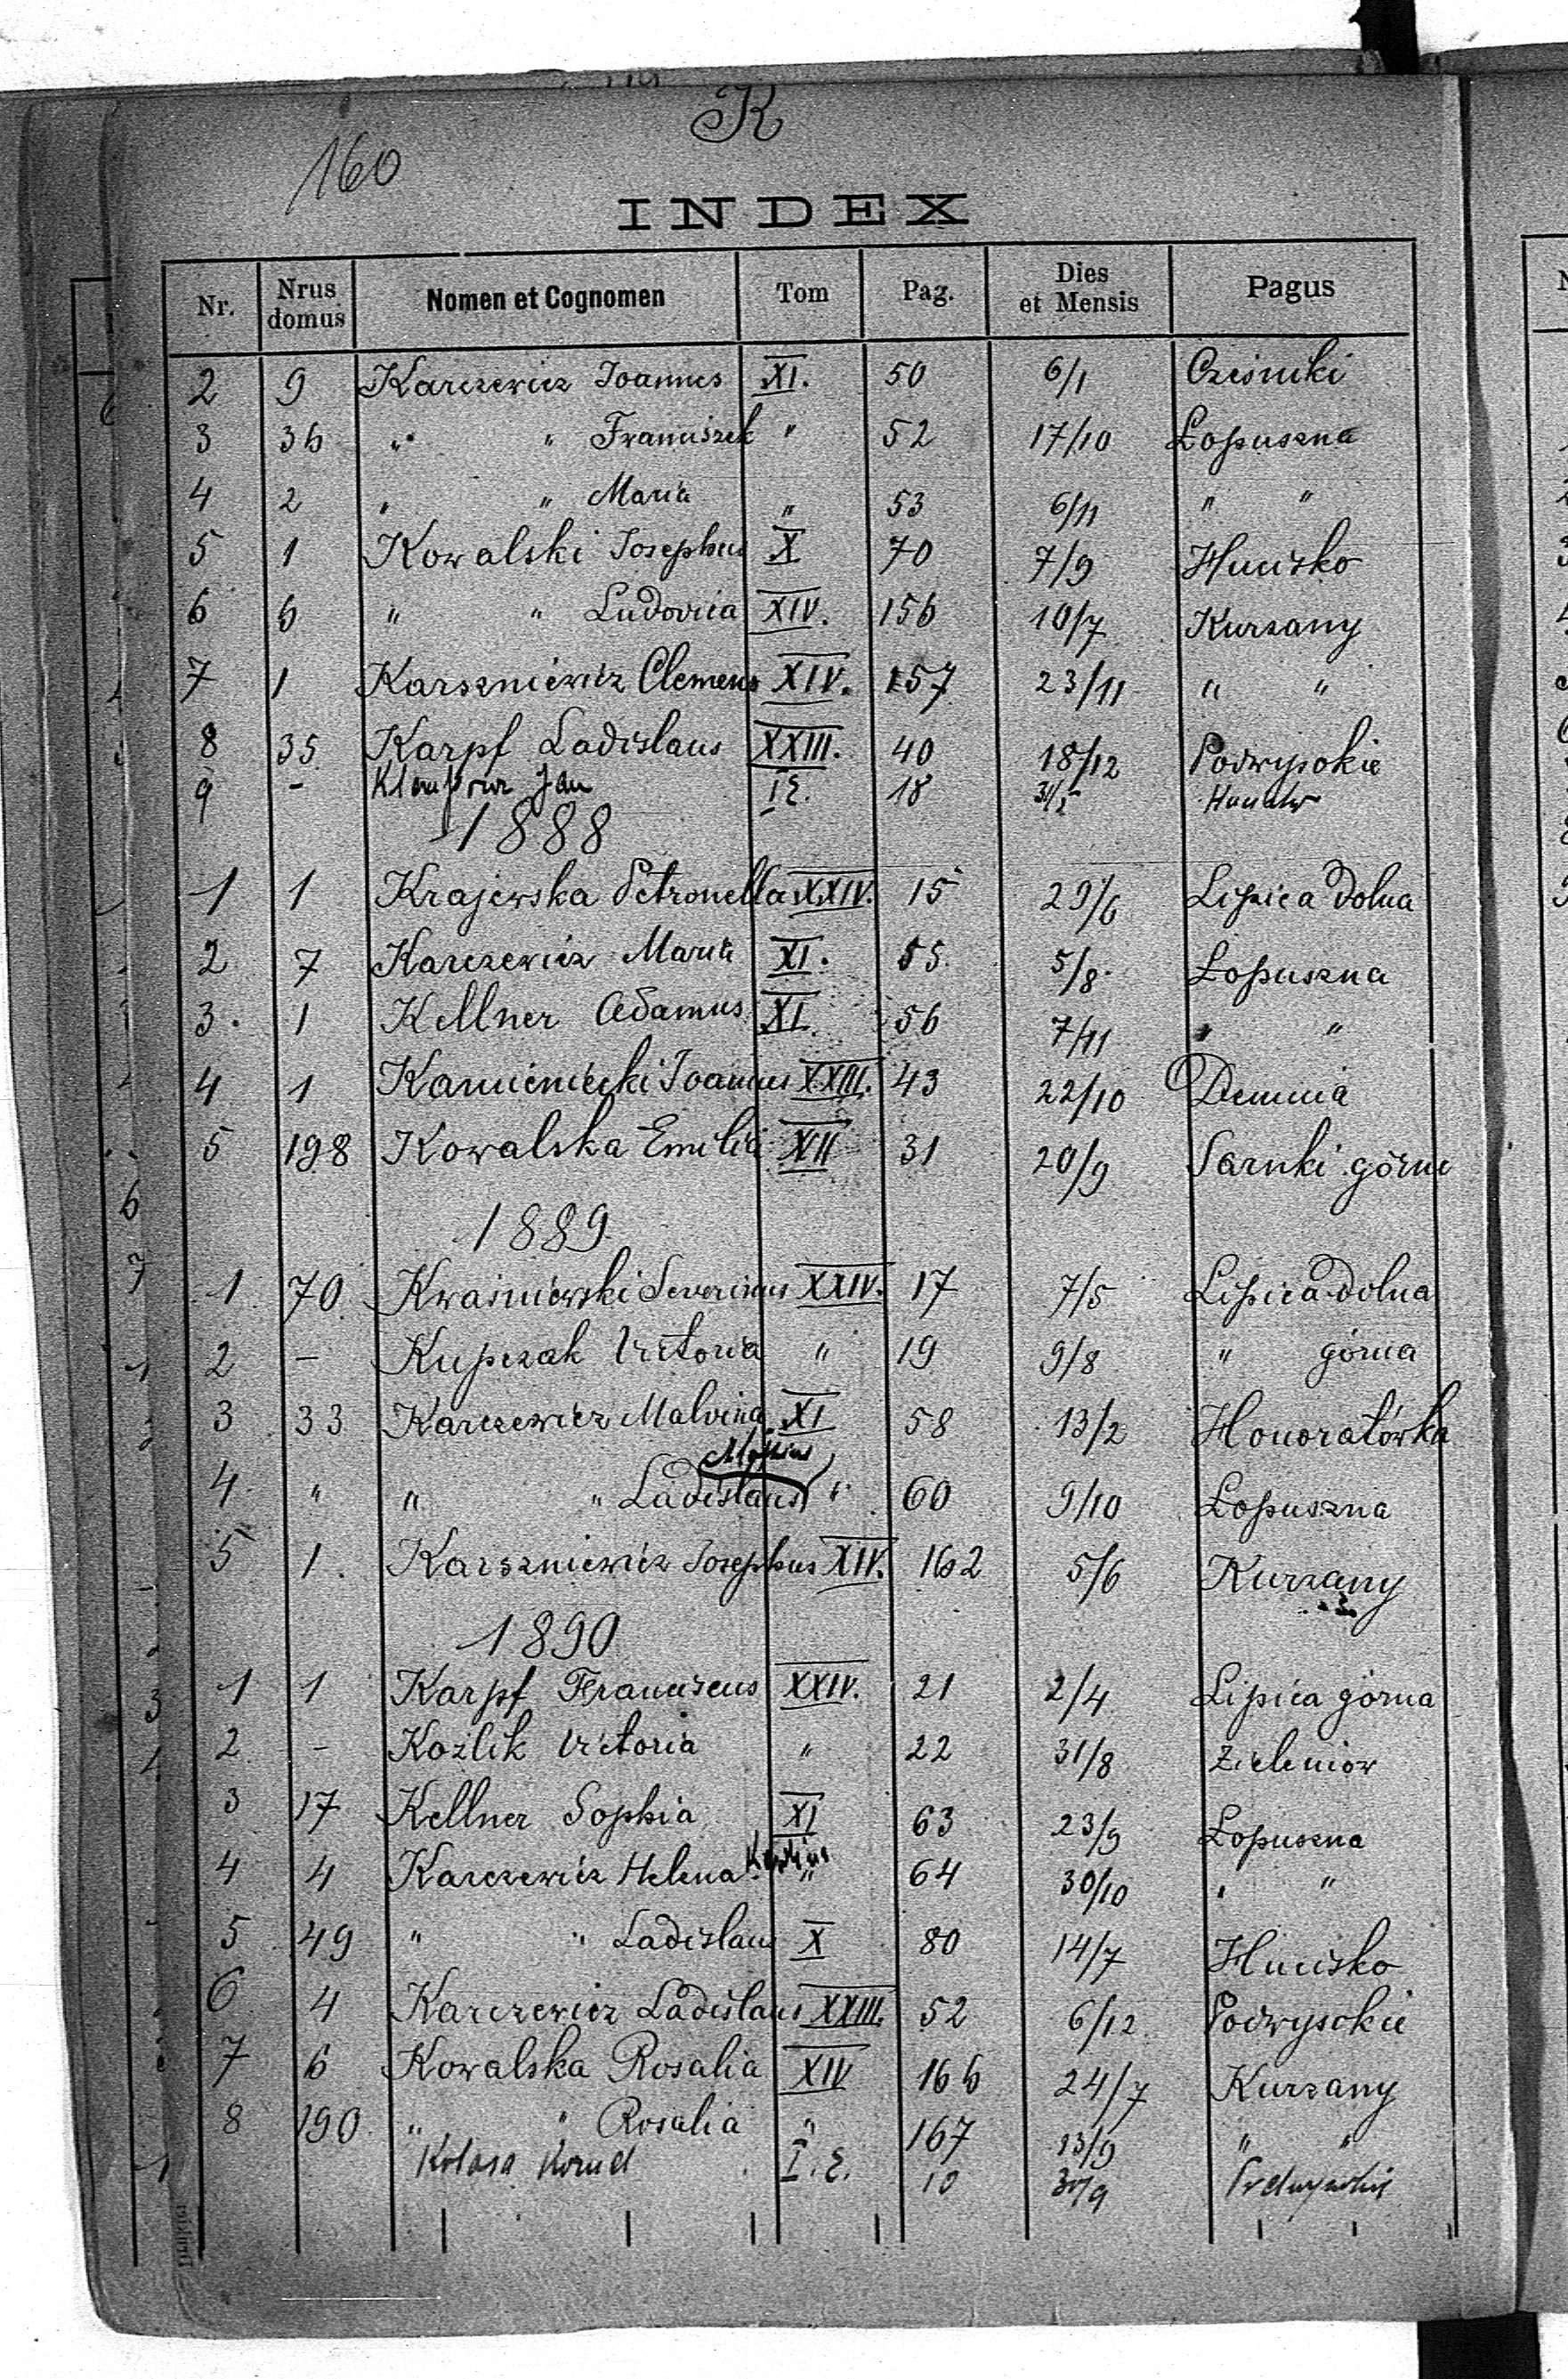 K
160
INDEX
Nr. Nrus domus Nomen et Cognomen Tom Pag. Dies et Mensis Pagus
2 9 Karczewicz Joannes XI. 50 6/1 Czesniki
3 36 " " Franciszek " 52 17/10 Łopuszna
4 2 " " Maria " 53 6/11 " "
5 1 Kowalski Josephus X 70 7/9 Hucisko
6 6 " " Ludovica XIV. 156 10/7 Kurzany
7 1 Karszniewicz Clemens XIV. 157 23/11 " "
8 35 Karpf Ladislaus XXIII. 40 18/12 Podwysokie
9 - Jan I E. 18
1888
1 1 Krajewska Petronella XXIV. 15 29/6 Lipica dolna
2 7 Karczewicz Maria XI. 55. 5/8. Łopuszna
3. 1 Kellner Adamus XI. 56 7/11 " "
4 1 Kamieniecki Joannes XXIII. 43 22/10 Demnia
5 198 Kowalska Emilia XII 31 20/9 Sarnki górne
1889
1 70 Kwaśniewski Severinus XXIV. 17 7/5 Lipica dolna
2 - Kupczak Victoria " 19 9/8 " górna
3 33 Karczewicz Malvina XI 58 13/2 Honoratówka
4. " " " Ladislaus " 60 9/10 Łopuszna
5 1. Karszniewicz Josephus XIV. 162 5/6 Kurzany
1890
1 1 Karpf Franciscus XXIV. 21 2/4 Lipica górna
2 - Kozlik Victoria " 22 31/8 Zieleniow
3 17 Kellner Sophia XI 63 23/9 Łopuszna
4 4 Karczewicz Helena " 64 30/10 " "
5 49 " " Ladislaus X 80 14/7 Hucisko
6 4 Karczewicz Ladislaus XXIII. 52 6/12 Podwysokie
7 6 Kowalska Rosalia XIV 166 24/7 Kurzany
8 190 " " Rosalia " 167 13/9 " "
Kolasa Kornel I. E. 10 30/9